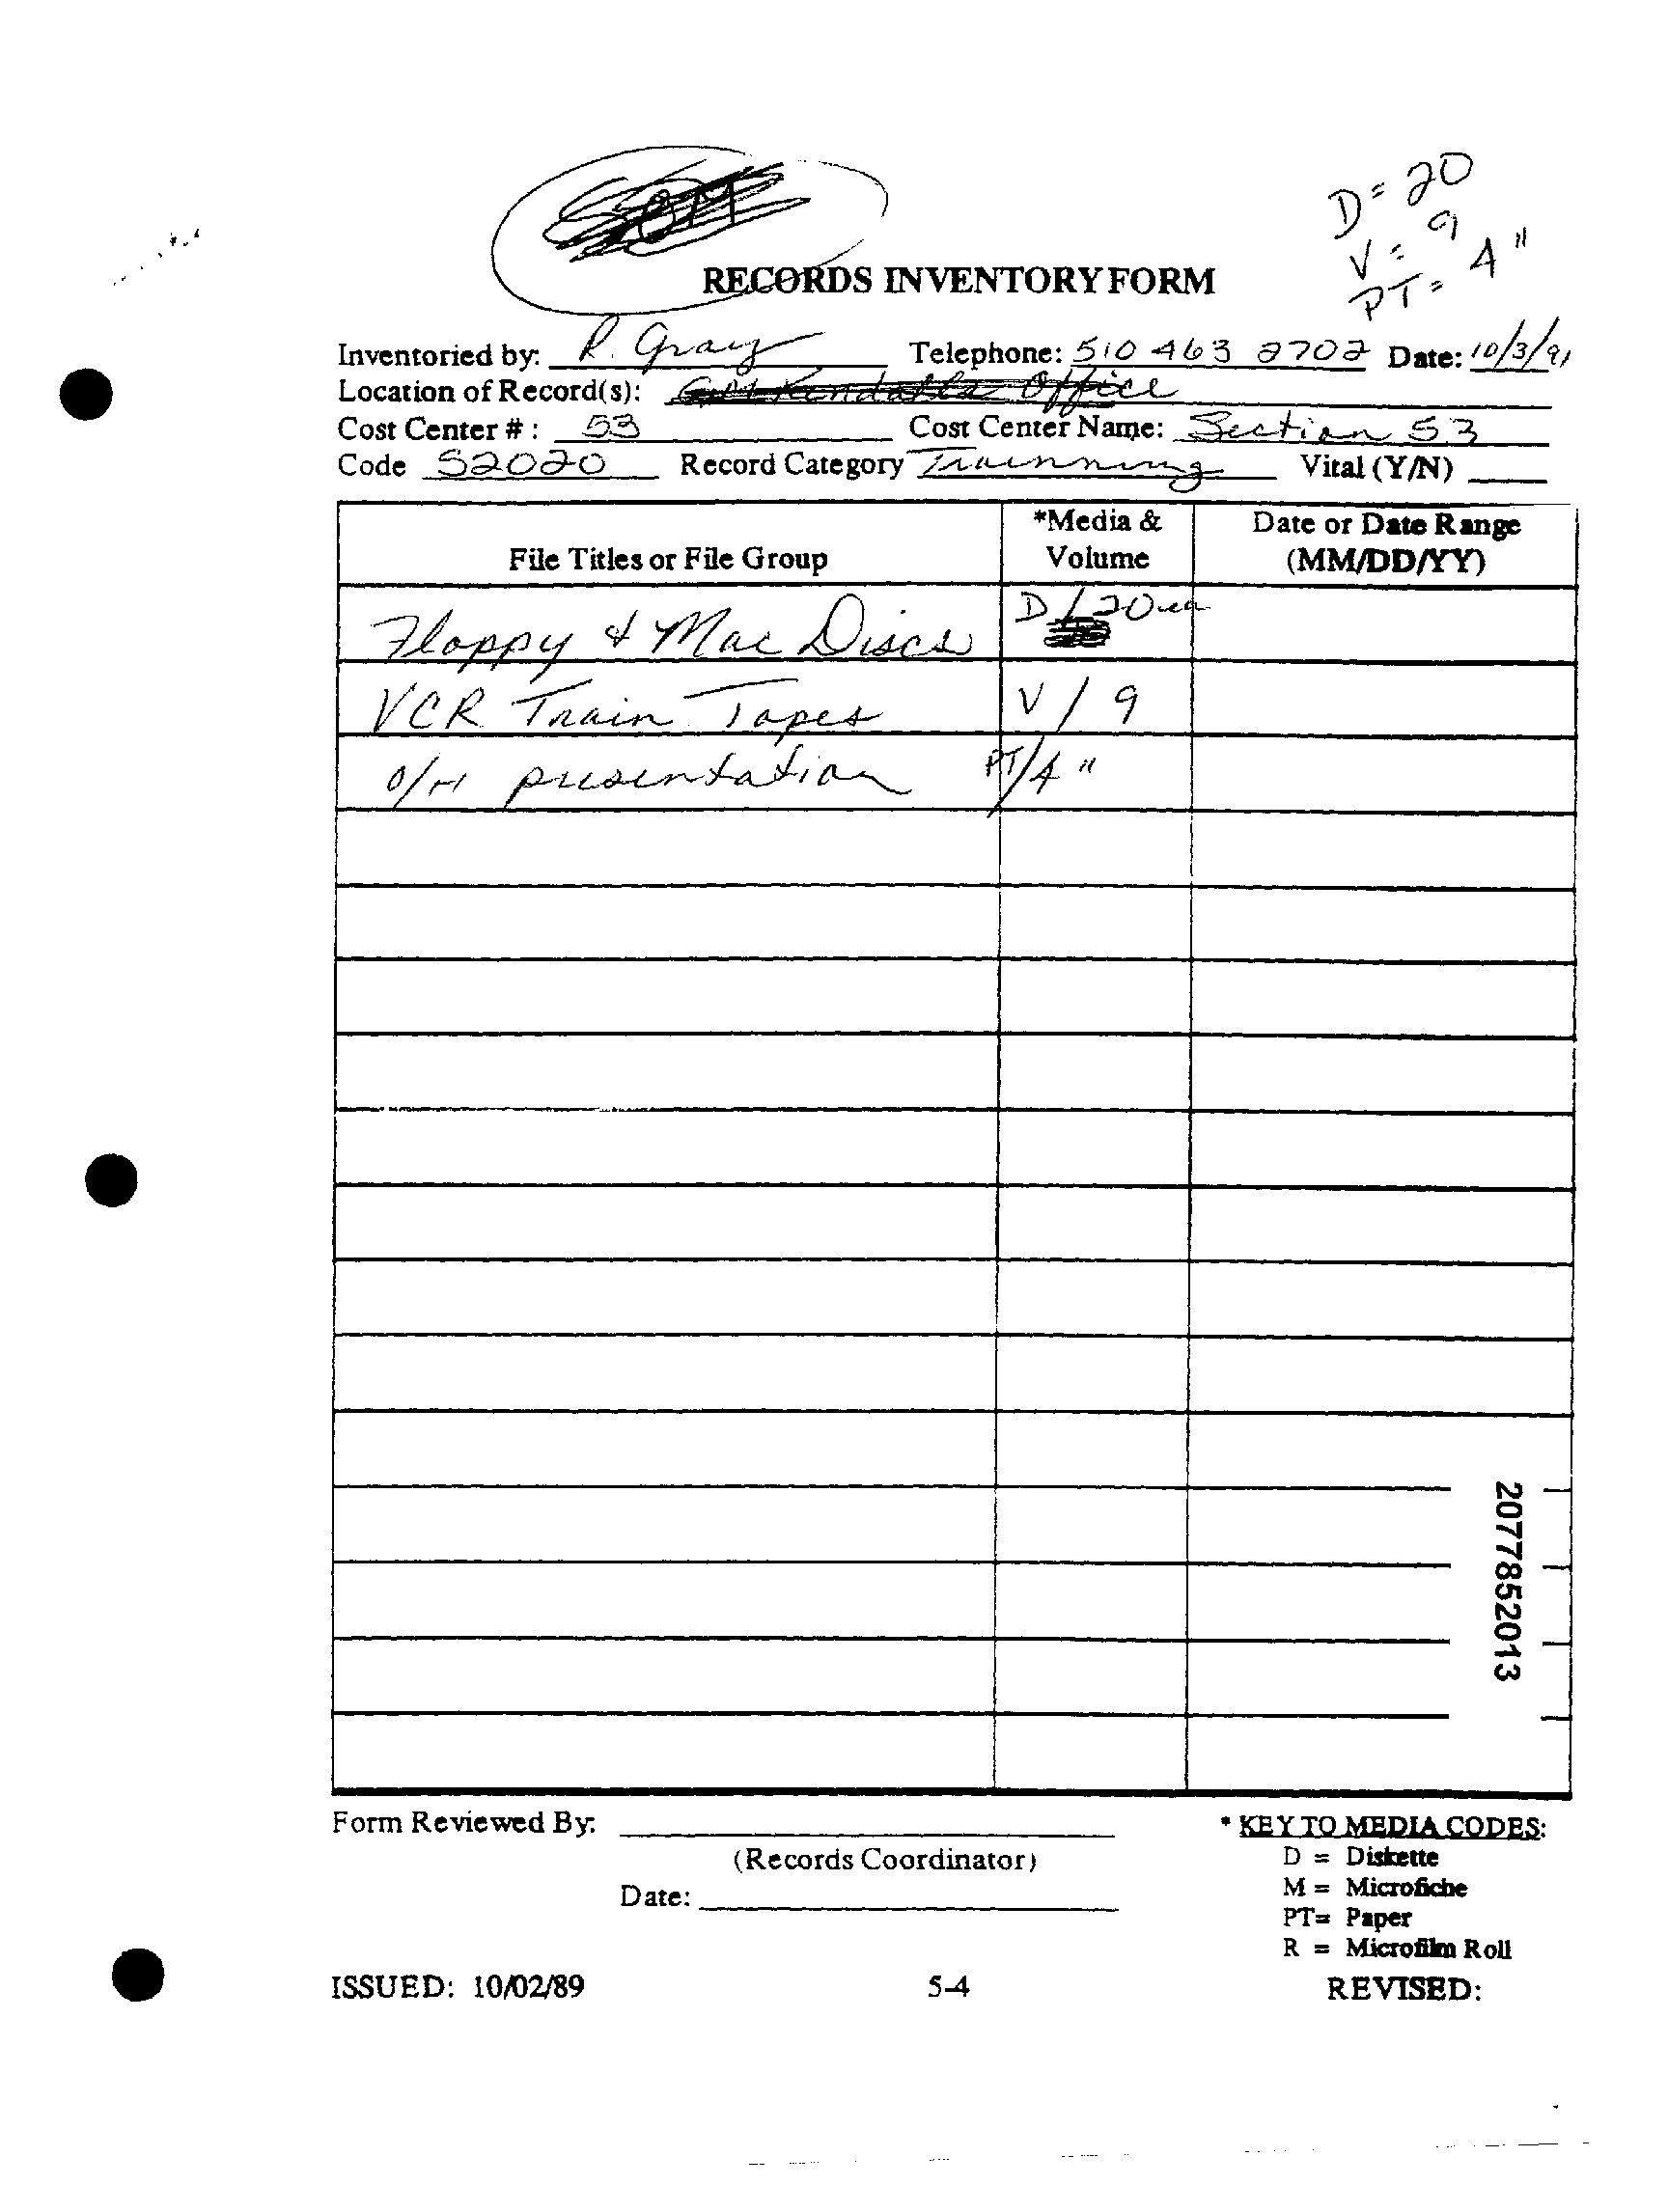 D = 20
V = 9
PT = 4"
RECORDS INVENTORY FORM
Inventoried by: R. Gray Telephone: 510 463 2702 Date: 10/3/91
Location of Record(s): Office
Cost Center # : 53 Cost Center Name: Section 53
Code S2020 Record Category Trainning Vital (Y/N)
File Titles or File Group *Media & Volume Date or Date Range (MM/DD/YY)
Floppy & Mac Discs D/20 ea
VCR Train Tapes V/9
O/H presentation PT/4"
2077852013
Form Reviewed By:
(Records Coordinator)
Date:
* KEY TO MEDIA CODES:
D = Diskette
M = Microfiche
PT= Paper
R = Microfilm Roll
ISSUED: 10/02/89 5-4 REVISED: